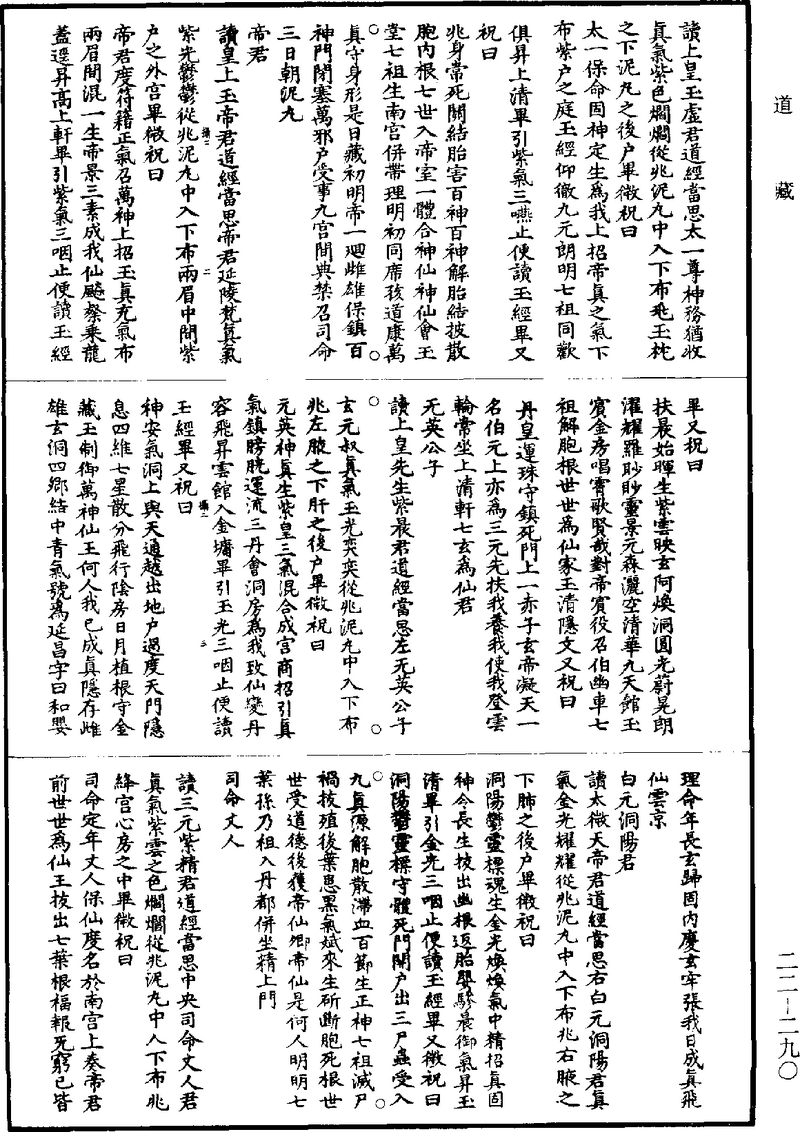 道藏
讀上皇玉虛君道經當思太一尊神務猶收
真氣紫色爓爓從兆泥丸中入下布兆玉枕
之下泥丸之後戶畢微祝曰
太一保命固神定生爲我上招帝真之氣下
布紫戶之庭玉經仰徹九元朗明七祖同歡
俱昇上清畢引紫氣三嚥止便讀玉經畢又
祝曰
兆身常死關結胎害百神百神解胎結披散
胞內根七世入帝室一體合神仙神仙會玉
堂七祖生南宮併帶理明初同席孩道康萬
真守身形是日藏初明帝一𢌞雌雄保鎮百
神門閉塞萬邪戶受事九宮間典禁召司命
三日朝泥丸
帝君
讀皇上玉帝君道經當思帝君延陵梵真氣
紫光鬱鬱從兆泥丸中入下布兩眉中間紫
戶之外宮畢微祝曰
帝君度符籍正氣召萬神上招玉真充氣布
兩眉間混一生帝景三素成我仙飇粲乘龍
蓋遝昇高上軒畢引紫氣三咽止便讀玉經
畢又祝曰
扶晨始暉生紫雲映玄阿煥洞圓光蔚晃朗
濯耀羅眇眇靈景元森灑空清華九天館玉
賓金房唱霄歌賢哉對帝賓役召伯幽車七
祖解胞根世世爲仙家玉清隱文又祝曰
丹皇運珠守鎮死門上一赤子玄帝凝天一
名伯元上亦爲三元先扶我養我使我登雲
輪常坐上清軒七玄爲仙君
无英公子
讀上皇先生紫晨君道經當思左无英公子
玄元叔真氣玉光奕奕從兆泥丸中入下布
兆左腋之下肝之後戶畢微祝曰
元英神真生紫皇三氣混合成宮商招引真
氣鎮膀胱運流三丹會洞房爲我致仙變丹
容飛昇雲館入金墉畢引玉光三咽止便讀
玉經畢又祝曰
神安氣洞上與天通越出地戶過度天門隱
息四維七星散分飛行陰房日月植根守金
藏玉制御萬神仙王何人我已成真隱存雌
雄玄洞四鄉結中青氣號爲延昌字曰和嬰
理命年長玄歸固內慶玄牢張我日成真飛
仙雲京
白元洞陽君
讀太微天帝君道經當思右白元洞陽君真
氣金光耀耀從兆泥丸中入下布兆右腋之
下肺之後戶畢微祝曰
洞陽鬱靈標魂生金光煥煥氣中精招真固
神令長生拔出幽根返胎嬰驂晨御氣昇玉
清畢引金光三咽止便讀玉經畢又微祝曰
洞陽鬱靈標守體死門閉戶出三尸蟲受入
九真源解胞散滯血百節生正神七祖滅尸
禍拔殖後葉患黑氣斌來生斫斷胞死根世
世受道德後獲帝仙卿帝仙是何人明明七
葉孫乃祖入丹都併坐精上門
司命丈人
讀三元紫精君道經當思中央司命丈人君
真氣紫雲之色爓爓從兆泥丸中入下布兆
絳宮心房之中畢微祝曰
司命定年丈人保仙度名於南宮上奏帝君
前世世爲仙王拔出七葉根福報无窮已皆
二二—二九〇